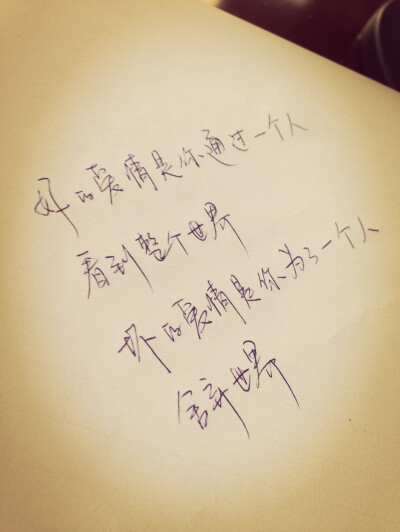 好的爱情是你通过一个人
看到整个世界
坏的爱情是你为了一个人
舍弃世界